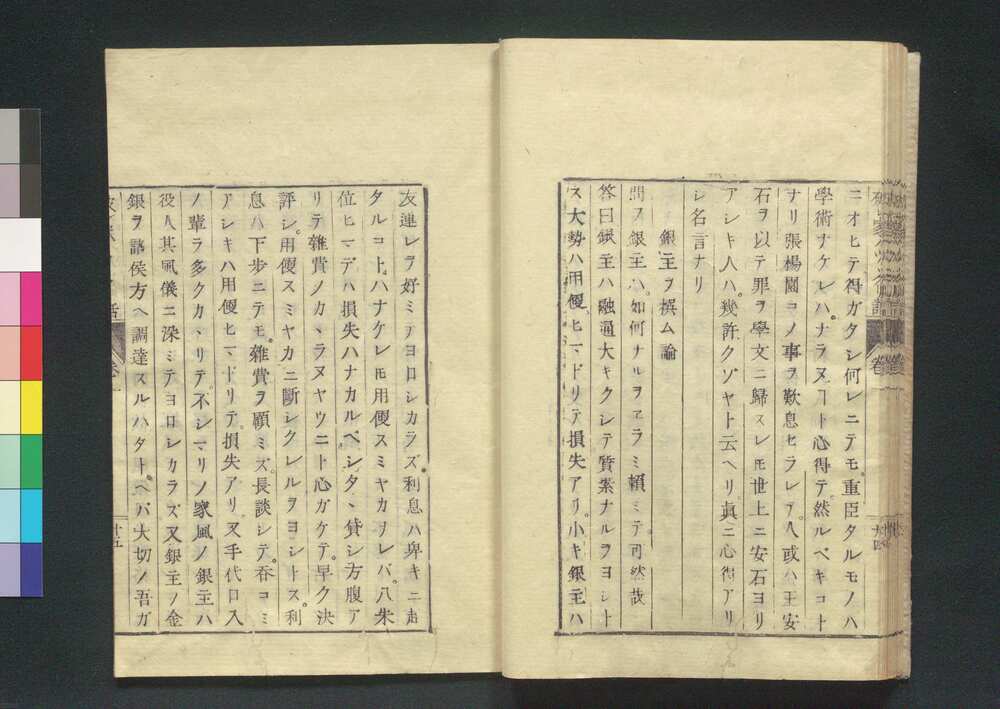 ニオヒテ得ガタシ何レニテモ重臣タルモノハ
學術ナケレハナラヌヿト心得テ然ルベキコト
ナリ張楊園コノ事ヲ歎息セラレテ人或ハ王安
石ヲ以テ罪ヲ學文ニ歸スレモ世上ニ安石ヨリ
アシキ人ハ幾許クゾヤト云ヘリ眞ニ心得アリ
シ名言ナリ
銀主ヲ撰ム論
問フ銀主ハ如何ナルヲヱラミ頼ミテ可然哉
答曰銀主ハ融通大キクシテ質素ナルヲヨシト
ス大勢ハ用偃ヒマドリテ損失アリ小キ銀主ハ
廿四
友連レヲ好ミテヨロシカラズ利息ハ卑キニ走
タルコトハナケレモ用偃スミヤカヲレバ八朱
位ヒマデハ損失ハナカルベシタヽ貸シ方腹ア
リテ雜費ノカヽラヌヤウニト心ガケテ早ク決
評シ用偃スミヤカニ斷シクレルヲヨシトス利
息ハ下歩ニテモ雜費ヲ顧ミズ長談シテ呑コミ
アシキハ用偃ヒマドリテ損失アリ又手代口入
ノ輩ヲ多クカヽリテ不シマリノ家風ノ銀主ハ
役人其風儀ニ深ミテヨロシカラズ又銀主ノ金
銀ヲ諸侯方ヘ調達スルハタトヘバ大切ノ吾ガ
廿五